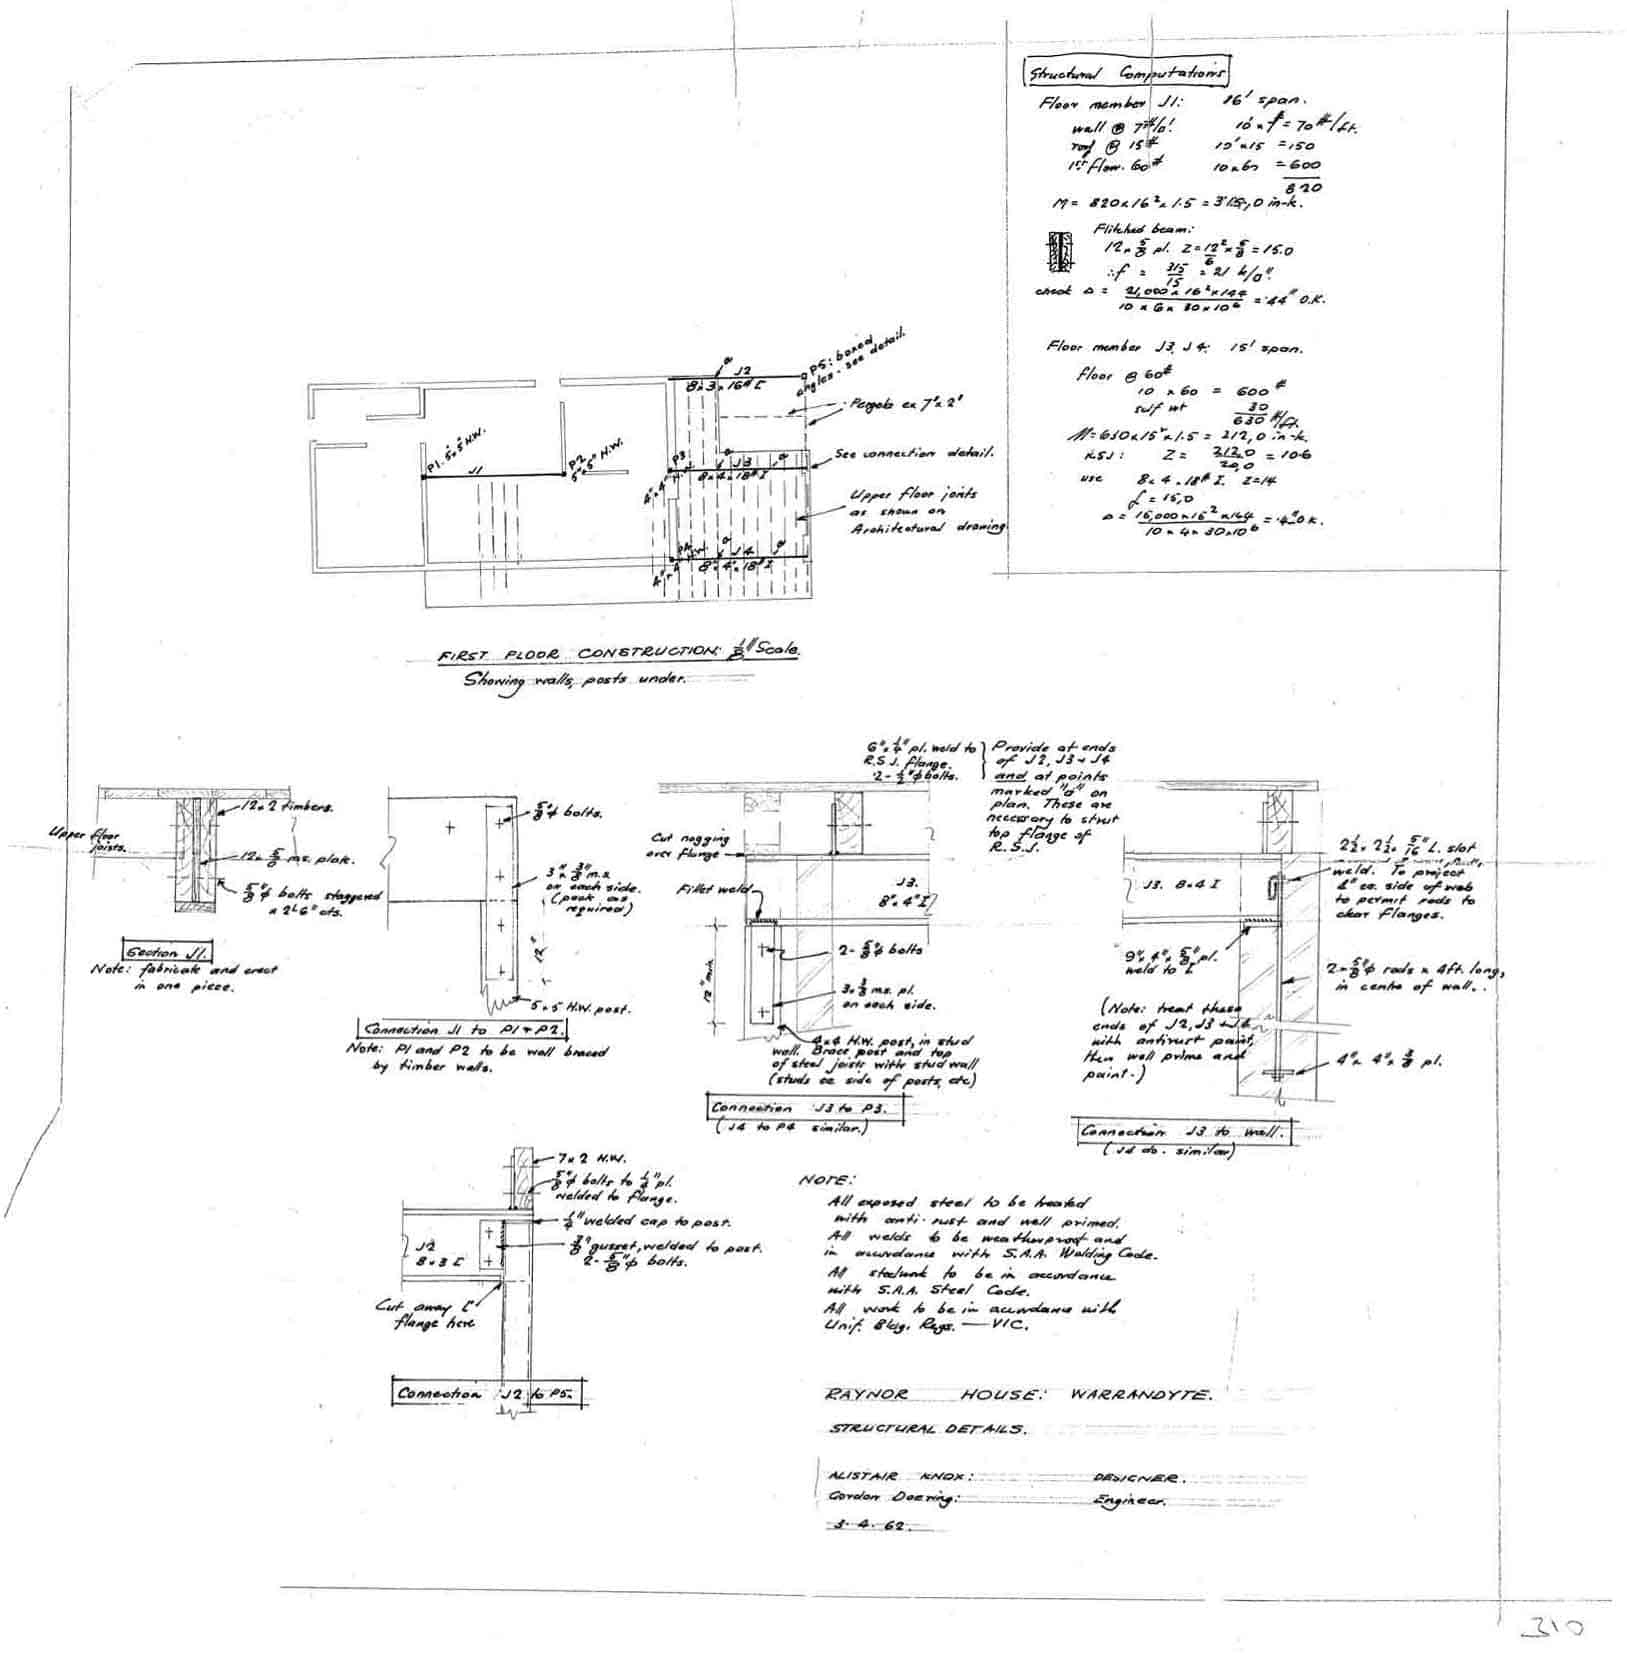 Structural Computations
Floor member J1: 16' span.
wall @ 7#/□'. 10' x 7 = 70 #/ft.
roof @ 15# 10' x 15 = 150
1st floor. 60# 10 x 60 = 600
820
M = 820 x 16² x 1.5 = 315,0 in-k.
Flitched beam:
12 x 5/8 pl. Z = 12²/6 x 5/8 = 15.0
∴ f = 315/15 = 21 k/□".
check Δ = 21,000 x 16² x 144 / 10 x 6 x 30 x 10⁶ = .44" O.K.
Floor member J3, J4: 15' span.
floor @ 60#
10 x 60 = 600 #
self wt 30
630 #/ft.
M = 630 x 15² x 1.5 = 212,0 in-k.
R.S.J: Z = 212,0 / 20,0 = 10.6
use 8 x 4 x 18# I. Z = 14
f = 15,0
Δ = 15,000 x 16² x 144 / 10 x 4 x 30 x 10⁶ = .4" O.K.
a
J2
8 x 3 x 16# [
P5: boxed
angles - see detail.
Pergola ex 7" x 2"
P1. 5" x 5" H.W.
J1
P2
5" x 5" H.W.
P3
4" x 4" H.W.
a J3 a
8 x 4 x 18# I
See connection detail.
Upper floor joists
as shown on
Architectural drawing
P4
4" x 4" H.W.
a J4 a
8" x 4" x 18# I
FIRST FLOOR CONSTRUCTION: 1/8" Scale.
Showing walls, posts under.
Upper floor
joists.
12 x 2 timbers.
12 x 5/8 m.s. plate.
5/8"φ bolts staggered
x 2'6" cts.
Section J1.
Note: fabricate and erect
in one piece.
5/8"φ bolts.
3" x 3/8" m.s.
on each side.
(pack as
required)
12"
5 x 5 H.W. post.
Connection J1 to P1 + P2.
Note: P1 and P2 to be well braced
by timber walls.
6" x 1/4" pl. weld to
R.S.J. flange.
2 - 1/2"φ bolts.
Provide at ends
of J2, J3 + J4
and at points
marked "a" on
plan. These are
necessary to strut
top flange of
R.S.J.
Cut nogging
over flange
Fillet weld
J3.
8" x 4" I
12" min.
2 - 5/8"φ bolts
3 x 3/8 m.s. pl.
on each side.
4 x 4 H.W. post, in stud
wall. Brace post and top
of steel joists with stud wall
(studs ea side of posts, etc)
Connection J3 to P3.
(J4 to P4 similar.)
J3. 8 x 4 I
2½ x 2½ x 5/16" L. slot
weld. To project
4" ea. side of web
to permit rods to
clear flanges.
9" x 4" x 5/8" pl.
weld to L
2 - 5/8"φ rods x 4ft. long,
in centre of wall.
(Note: treat these
ends of J2, J3 + J4
with antirust paint,
then well prime and
paint.)
4" x 4" x 3/8 pl.
Connection J3 to wall.
(J4 do. similar)
7 x 2 H.W.
5/8"φ bolts to 1/4" pl.
welded to flange.
1/4" welded cap to post.
3/8" gusset, welded to post.
2 - 5/8"φ bolts.
J2
8 x 3 [
Cut away [
flange here
Connection J2 to P5.
NOTE:
All exposed steel to be treated
with anti-rust and well primed.
All welds to be weatherproof and
in accordance with S.A.A. Welding Code.
All steelwork to be in accordance
with S.A.A. Steel Code.
All work to be in accordance with
Unif. Bldg. Regs. — VIC.
RAYNOR HOUSE: WARRANDYTE.
STRUCTURAL DETAILS.
ALISTAIR KNOX: DESIGNER.
Gordon Doering: Engineer.
3.4.62.
310